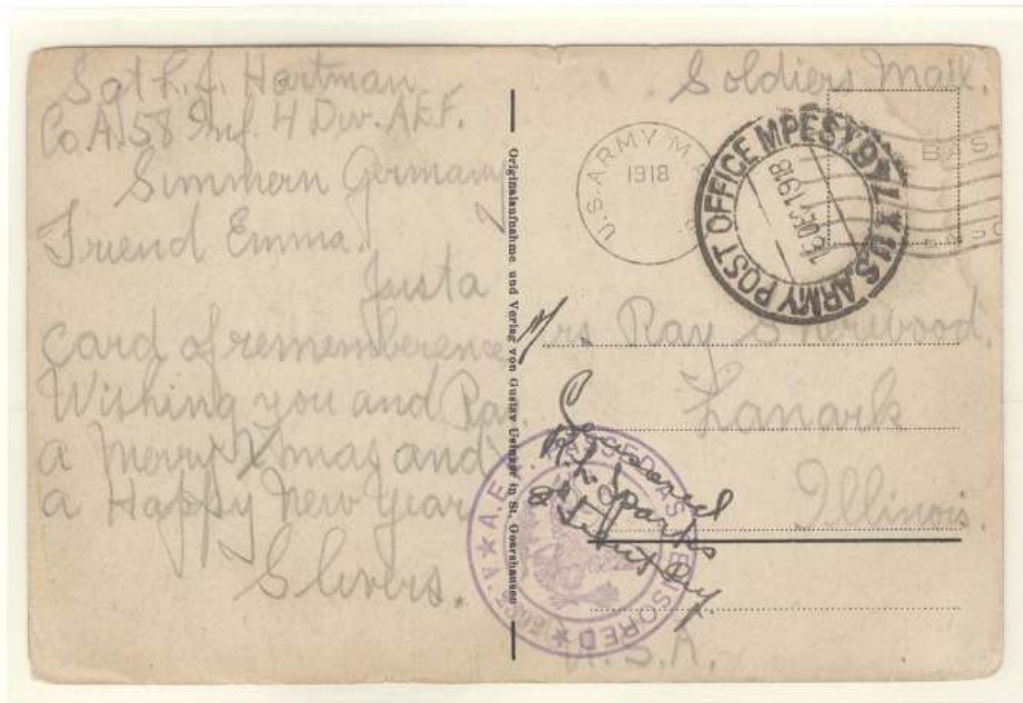 Sgt L. J. Hartman
Co A. 58 Inf. 4 Div. A.E.F.
Simmern Germany
Friend Emma.
Justa
card of rememberence
Wishing you and Ray
a merry Xmas and
a Happy New Year
Slivers.
Originalaufnahme und Verlag von Gustav in St. Goarshausen
Soldiers Mail.
U.S. ARMY M
1918
U.S. ARMY POST OFFICE M.P.E.S.
16 DEC 1918
Mrs Ray Sherwood.
Lanark
Illinois.
U.S.A.
Censored
Sparks
A.E.F. PASSED AS CENSORED